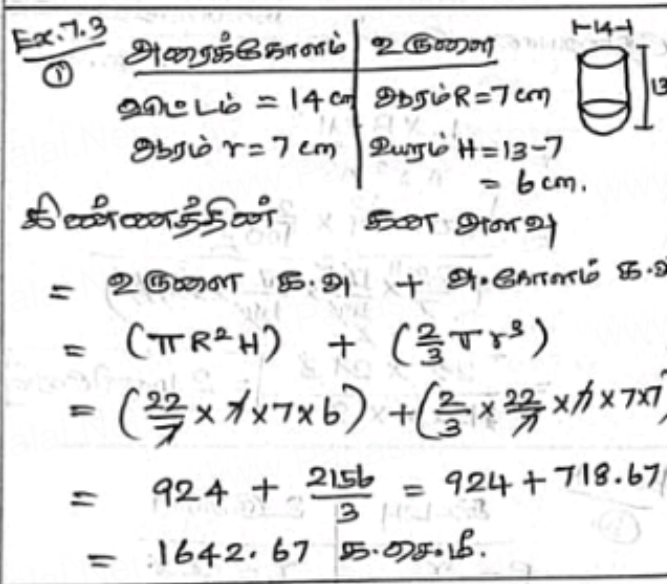 Ex.7.3
①
அரைக்கோளம் | உருளை
விட்டம் = 14 cm | ஆரம் R = 7 cm
ஆரம் r = 7 cm | உயரம் H = 13-7
= 6 cm.
⊢14⊣
13
கிண்ணத்தின் கன அளவு
= உருளை க.அ + அ.கோளம் க.அ
= (πR²H) + (2/3 πr³)
= (22/7 × 7 × 7 × 6) + (2/3 × 22/7 × 7 × 7 × 7
= 924 + 2156/3 = 924 + 718.67
= 1642.67 க.செ.மீ.